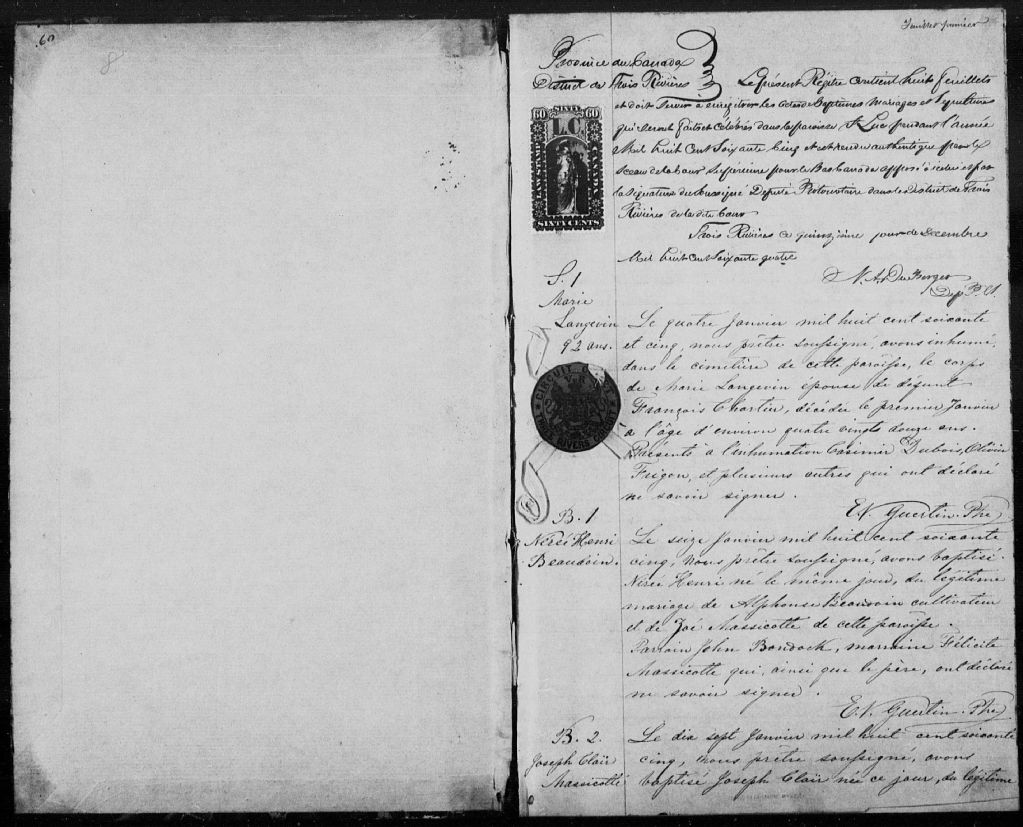 60
8
Feuillet premier
Province du Canada
District de Trois Rivières
Le présent Régitre contient huit feuillets
et doit servir à enrégistrer les actes de Baptêmes Mariages et Sépultures
qui seront faits et célébrés dans la paroisse St Luc pendant l'année
Mil huit Cent Soixante Cinq et est rendu authentique par le
Sceau de la Cour Supérieure pour le Bas Canada apposé à icelui et par
la Signature du Soussigné Député Protonotaire dans le District de Trois
Rivières de la dite Cour
Trois Rivières ce quinzième jour de Decembre
Mil huit Cent Soixante quatre
Dep P. C. S.
60 SIXTY 60
LC
SIXTY CENTS
S. 1
Marie
Langevin
92 ans.
Le quatre Janvier mil huit cent soixante
et cinq, nous prêtre soussigné, avons inhumé,
dans le cimetière de cette paroisse, le corps
de Marie Langevin épouse de défunt
François Chartier, décédée le premier Janvier
à l'âge d'environ quatre vingts douze ans.
Présents à l'inhumation Casimir Dubois, Olivier
Frigon, et plusieurs autres qui ont déclaré
ne savoir signer.
E. V. Guertin Ptre
CIRCUIT COURT
THREE RIVERS CIRCUIT
B. 1
Nérée Henri
Beaudoin.
Le seize Janvier mil huit cent soixante
cinq, nous prêtre soussigné, avons baptisé
Nérée Henri né le même jour, du légitime
mariage de Alphonse Beaudoin cultivateur
et de Zoé Massicotte de cette paroisse.
Parrain John Bondock, marraine Félicité
Massicotte qui, ainsi que le père, ont déclaré
ne savoir signer.
E. V. Guertin Ptre
B. 2.
Joseph Clair
Massicotte
Le dix sept Janvier mil huit cent soixante
cinq, nous prêtre soussigné, avons
baptisé Joseph Clair né ce jour, du légitime